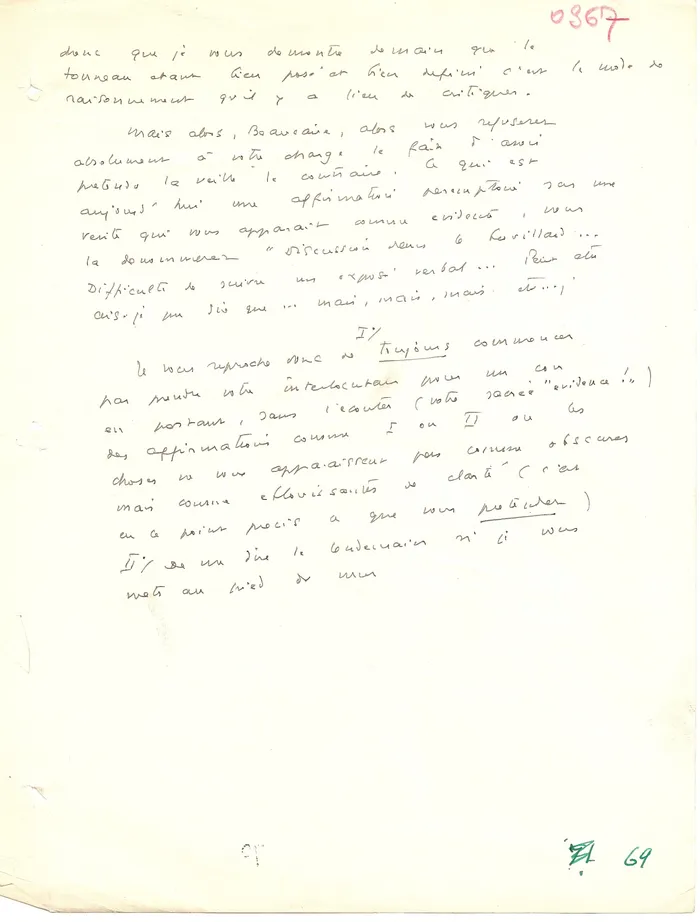 0367
donc que je vous demontre demain que le
tonneau etant bien posé et bien defini c'est le mode de
raisonnement qu'il y a lieu de critiquer.
Mais alors, Beaucaire, alors vous refuserez
absolument à votre charge le fait d'avoir
pretendu la veille le contraire. Ce qui est
aujourd'hui une affirmation peremptoire sur une
verité qui vous apparait comme evidente, vous
la denommerez "Discussion dans le
Difficulté de suivre un exposé verbal... Peut etre
ai-je pu dire que... mais, mais, mais etc...;
I°/
Je vous reproche donc de toujours commencer
par prendre votre interlocuteur pour un con
en portant, sans l'ecouter (votre sacrée "evidence!")
des affirmations comme I ou II ou les
choses ne vous apparaissent pas comme obscures
mais comme eblouissantes de clarté (c'est
en ce point precis a que vous)
II°/ De me dire le lendemain si je vous
mets au pied du mur
69